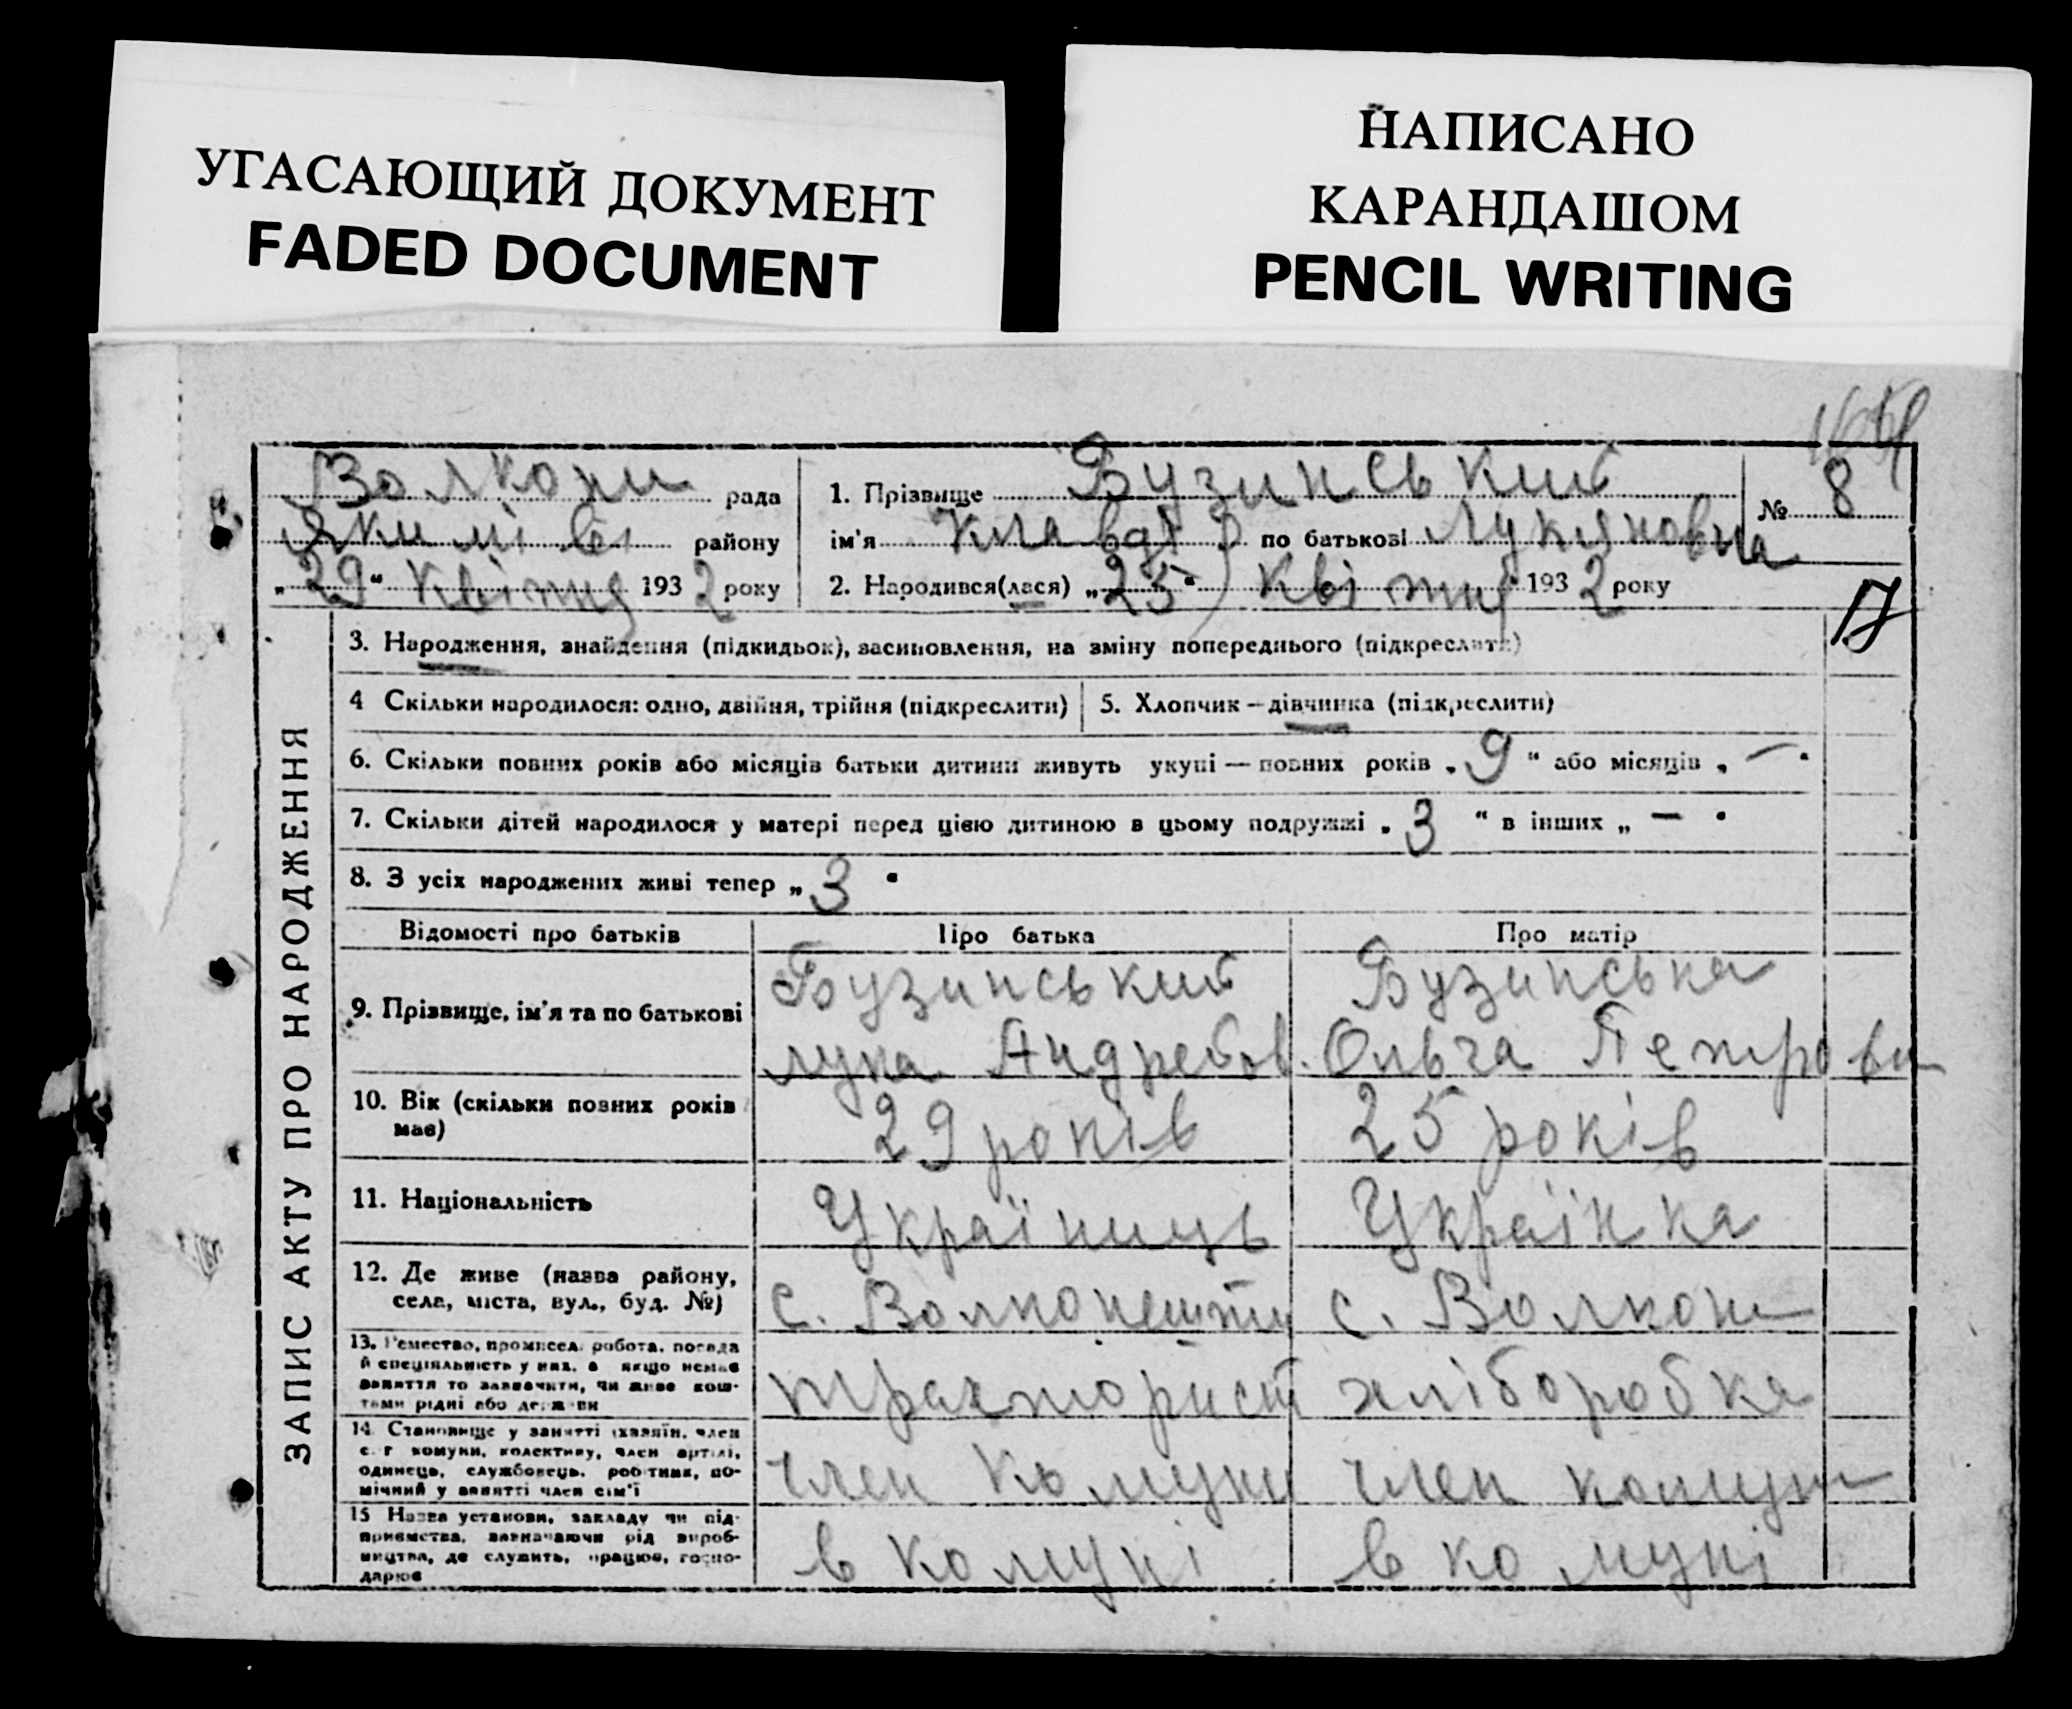 УГАСАЮЩИЙ ДОКУМЕНТ
FADED DOCUMENT
НАПИСАНО
КАРАНДАШОМ
PENCIL WRITING
рада
району
„29“ квітня 1932 року
1. Прізвище Бузинський
№ 8
ім'я Клавдія по батькові Лукяновна
2. Народився(лася) „25“ квітня 1932 року
17
ЗАПИС АКТУ ПРО НАРОДЖЕННЯ
3. Народження, знайдення (підкидьок), засиновлення, на зміну попереднього (підкреслити)
4 Скільки народилося: одно, двійня, трійня (підкреслити)
5. Хлопчик – дівчинка (підкреслити)
6. Скільки повних років або місяців батьки дитини живуть укупі — повних років „9“ або місяців „—“
7. Скільки дітей народилося у матері перед цією дитиною в цьому подружжі „3“ в інших „—“
8. З усіх народжених живі тепер „3“
Відомості про батьків
Про батька
Про матір
9. Прізвище, ім'я та по батькові
Бузинський
Лука Андреєов.
Бузинська
Ольга Петровн
10. Вік (скільки повних років має)
29 років
25 років
11. Національність
Українець
Українка
12. Де живе (назва району,
села, міста, вул., буд. №)
с. Волконешти
с. Волкон
13. Ремество, промисел, робота, посада
й спеціяльність у них, а якщо немає
заняття то зазначити, чи живе кош-
тами рідні або держави
тракторист
хліборобка
14. Становище у занятті (хазяїн, член
с. г комуни, колективу, член артілі,
одинець, службовець, робітник, по-
мічний у занятті член сім'ї
член комуни
член комун
15 Назва установи, закладу чи під-
приємства, зазначаючи рід вироб-
ництва, де служить, працює, госпо-
дарює
в комуні
в комуні